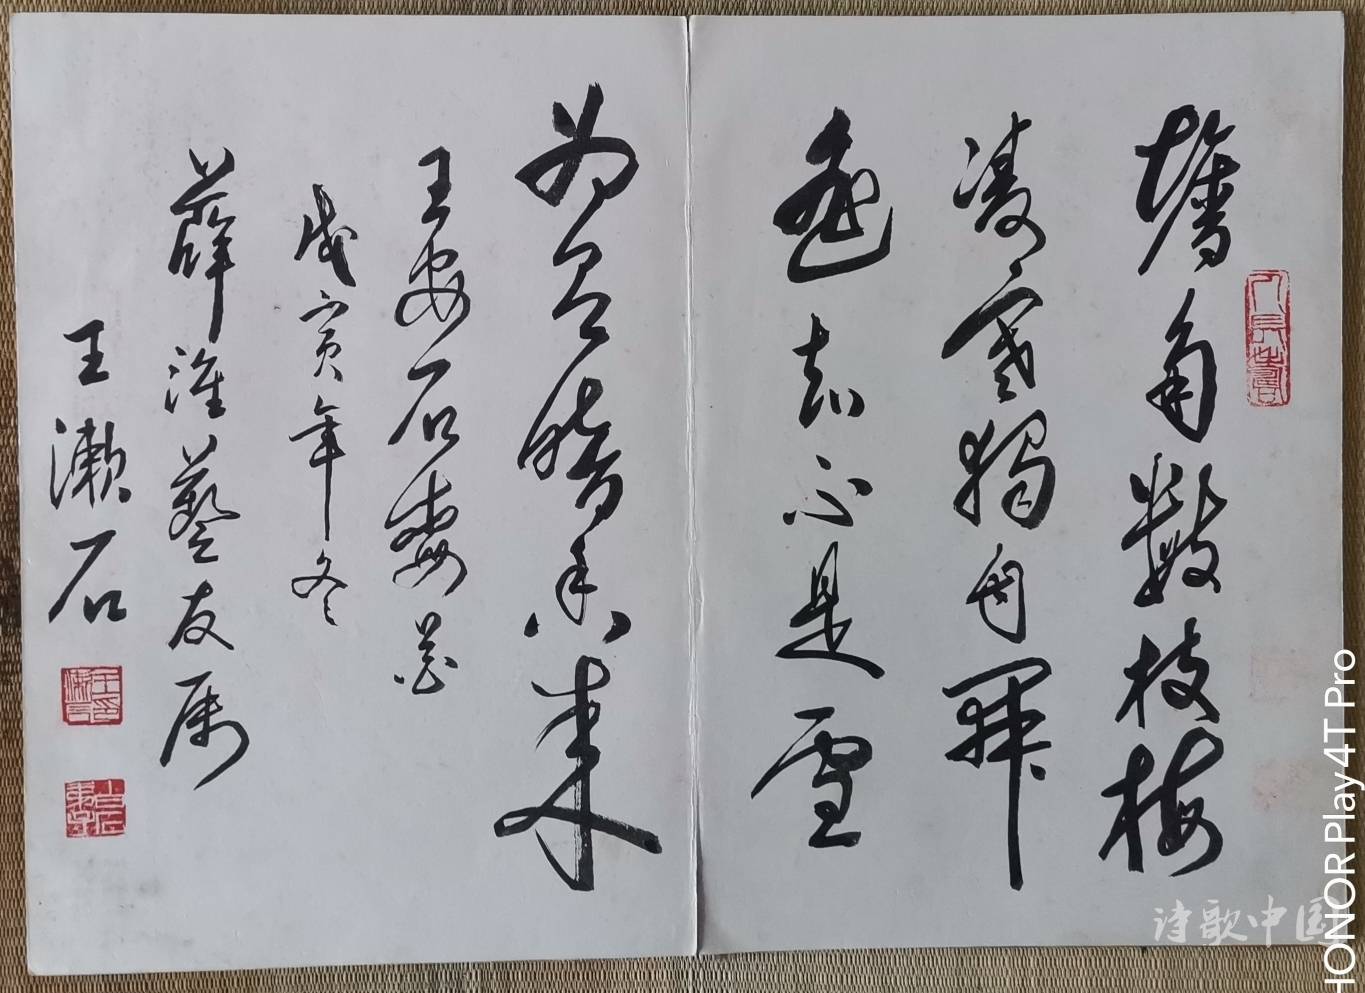 墙角数枝梅
凌寒独自开
遥知不是雪
为有暗香来
王安石 梅花
戊寅年冬
薛淮艺友属
王漱石
诗歌中国
HONOR Play4T Pro